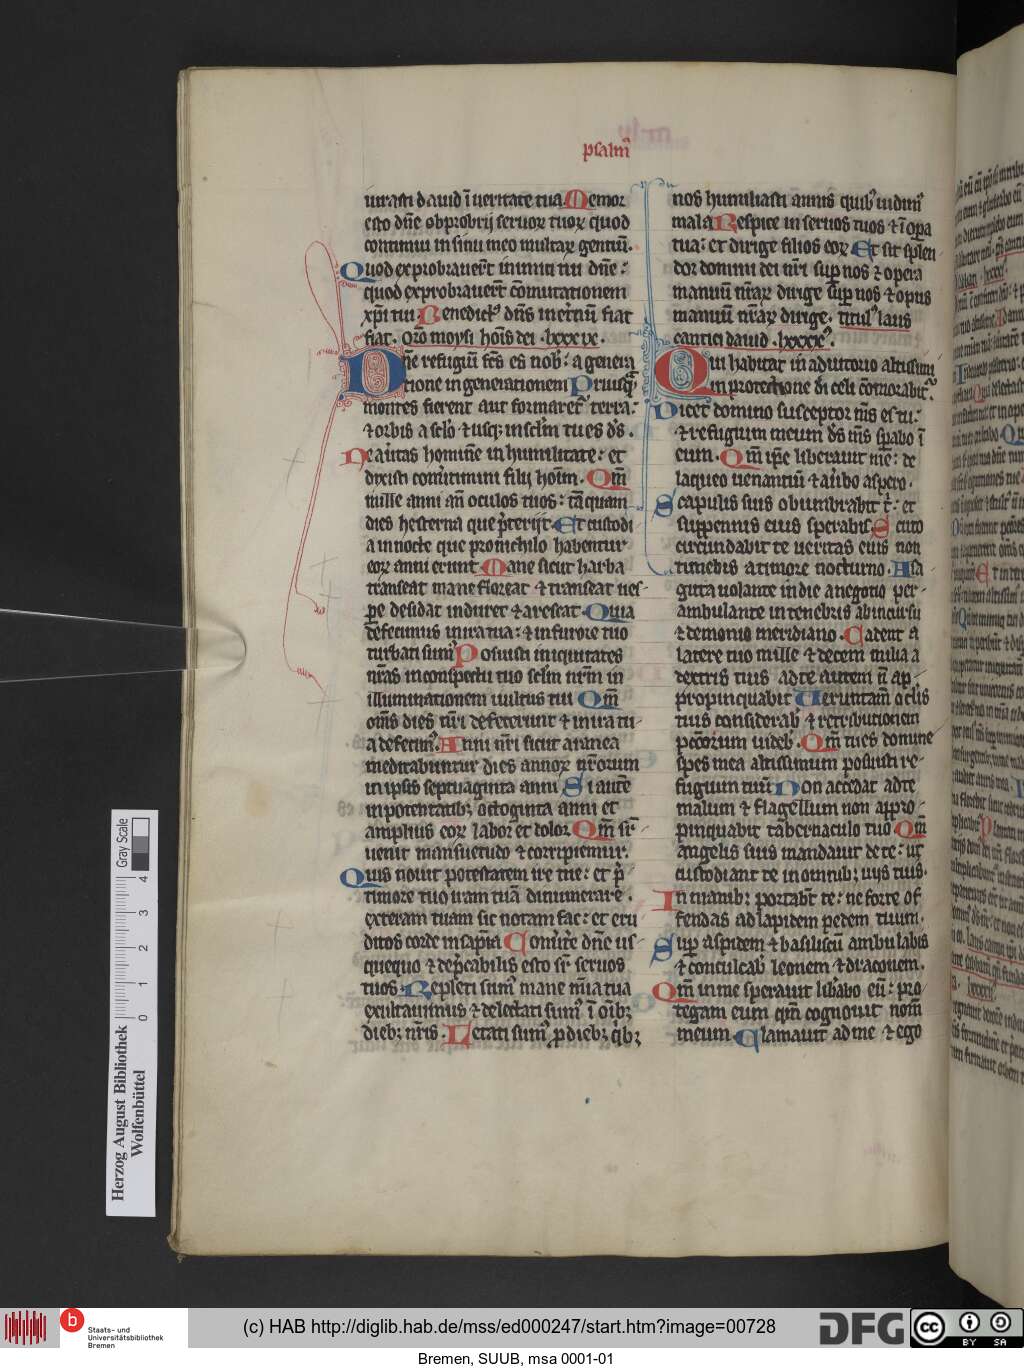 psalmꝰ
iurasti dauid ī ueritate tua. Memor
esto dn̄e obprobrij seruoꝝ tuoꝝ quod
continui in sinu meo multaꝝ gentiū.
Quod exprobrauer̄t inimici tui dn̄e:
quod exprobrauer̄t cōmutationem
xp̄i tui Benedictꝰ dn̄s inet̓nū fiat
fiat. Or̄o moysi hoīs dei. lxxxix.
Dn̄e refugiū fc̄s es nob̓: a genera
tione in generationem Priusq̄ꝫ
montes fierent aut formaret̓ terra:
⁊ orbis a sc̄lo ⁊ usqꝫ in sc̄lm tu es ds̄.
Ne au̓tas hominē in humilitate: et
dixisti conu̓timini filij hoīm. Qm̄
mille anni an̄ oculos tuos: tāquam
dies hesterna que p̄terijt. Et custodi
a in nocte que pro nichilo habentur
eoꝝ anni erunt Mane sicut harba
transeat mane floreat ⁊ transeat ues-
pe decidat induret ⁊ arescat. Quia
defecimus in ira tua: ⁊ in furore tuo
turbati sumꝰ Posuisti iniquitates
nr̄as in conspectu tuo sclm̄ nr̄m in
illuminationem uultus tui Qm̄
om̄s dies nr̄i defecerunt ⁊ in ira tu-
a defecimꝰ. Anni nr̄i sicut aranea
meditabuntur dies annoꝝ nr̄orum
in ipsis septuaginta anni Si autē
in potentatibꝫ octoginta anni et
amplius eoꝝ labor et dolor. Qm̄ sr̄-
uenit mansuetudo ⁊ corripiemur.
Quis nouit potestatem ire tue: et p̄
timore tuo iram tuā dinumerare.
exteram tuam sic notam fac: et eru
ditos corde in sapīa Conu̓te dn̄e us-
quequo ⁊ dep̄cabilis esto sr̄ seruos
tuos. Repleti sumꝰ mane mīa tua
exultauimus ⁊ delectati sumꝰ ī oībꝫ
diebꝫ nr̄is. Letati sumꝰ ꝓ diebꝫ qͥbꝫ
nos humiliasti annis quibꝰ uidimꝰ
mala Respice in seruos tuos ⁊ ī opa
tua: et dirige filios eoꝝ Et sit splen
dor domini dei nr̄i suꝑ nos ⁊ opera
manuū nr̄aꝝ dirige suꝑ nos ⁊ opus
manuū nr̄aꝝ dirige. titulꝰ laus
cantici dauid. lxxxxꝰ.
Qui habitat in adiutorio altissimi
in protectione di celi cōmorabit̓.
Dicet domino susceptor mīs es tu:
⁊ refugium meum ds̄ ms̄ sꝑabo ī
eum. Qm̄ ip̄e liberauit me: de
laqueo uenantiū ⁊ au̓bo aspero.
Scapulis suis obumbrabit t̓: et
sub pennis eius sperabis. Scuto
circundabit te ueritas eius non
timebis a timore nocturno. A sa
gitta uolante in die a negotio per-
ambulante in tenebris ab incursu
⁊ demonio meridiano. Cadent a
latere tuo mille ⁊ decem milia a
dextris tuis ad te autem n̄ ap-
propinquabit Ueruntam̄ oclis
tuis considerab̓ ⁊ retributionem
pecc̄orum uideb̓. Qm̄ tu es domine
spes mea altissimum posuisti re-
fugium tuū Non accedat ad te
malum ⁊ flagellum non appro-
pinquabit tabernaculo tuo Qm̄
angelis suis mandauit de te: ut
custodiant te in omnibꝫ uijs tuis.
In manibꝫ portabt̄ te: ne forte of
fendas ad lapidem pedem tuum.
Suꝑ aspidem ⁊ basiliscū ambulabis
⁊ conculcab̓ leonem ⁊ draconem.
Qm̄ in me sperauit lib̓abo eū: pro-
tegam eum qm̄ cognouit nom̄
meum. Clamauit ad me ⁊ ego
Herzog August Bibliothek
Wolfenbüttel
0 1 2 3 4
Gray Scale
b Staats- und
Universitätsbibliothek
Bremen
(c) HAB http://diglib.hab.de/mss/ed000247/start.htm?image=00728
DFG
cc BY SA
Bremen, SUUB, msa 0001-01